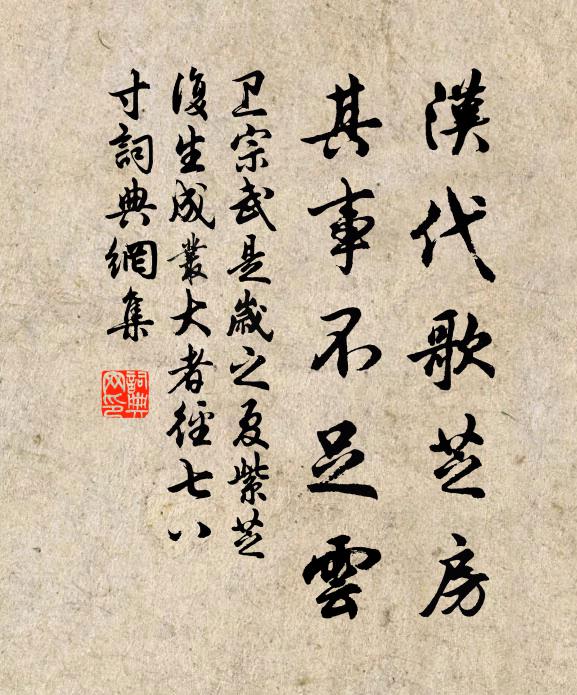 漢代歌芝房
其事不足雲
卫宗武是歲之夏紫芝
復生成叢大者徑七八
寸詞典網集
詞典
网印